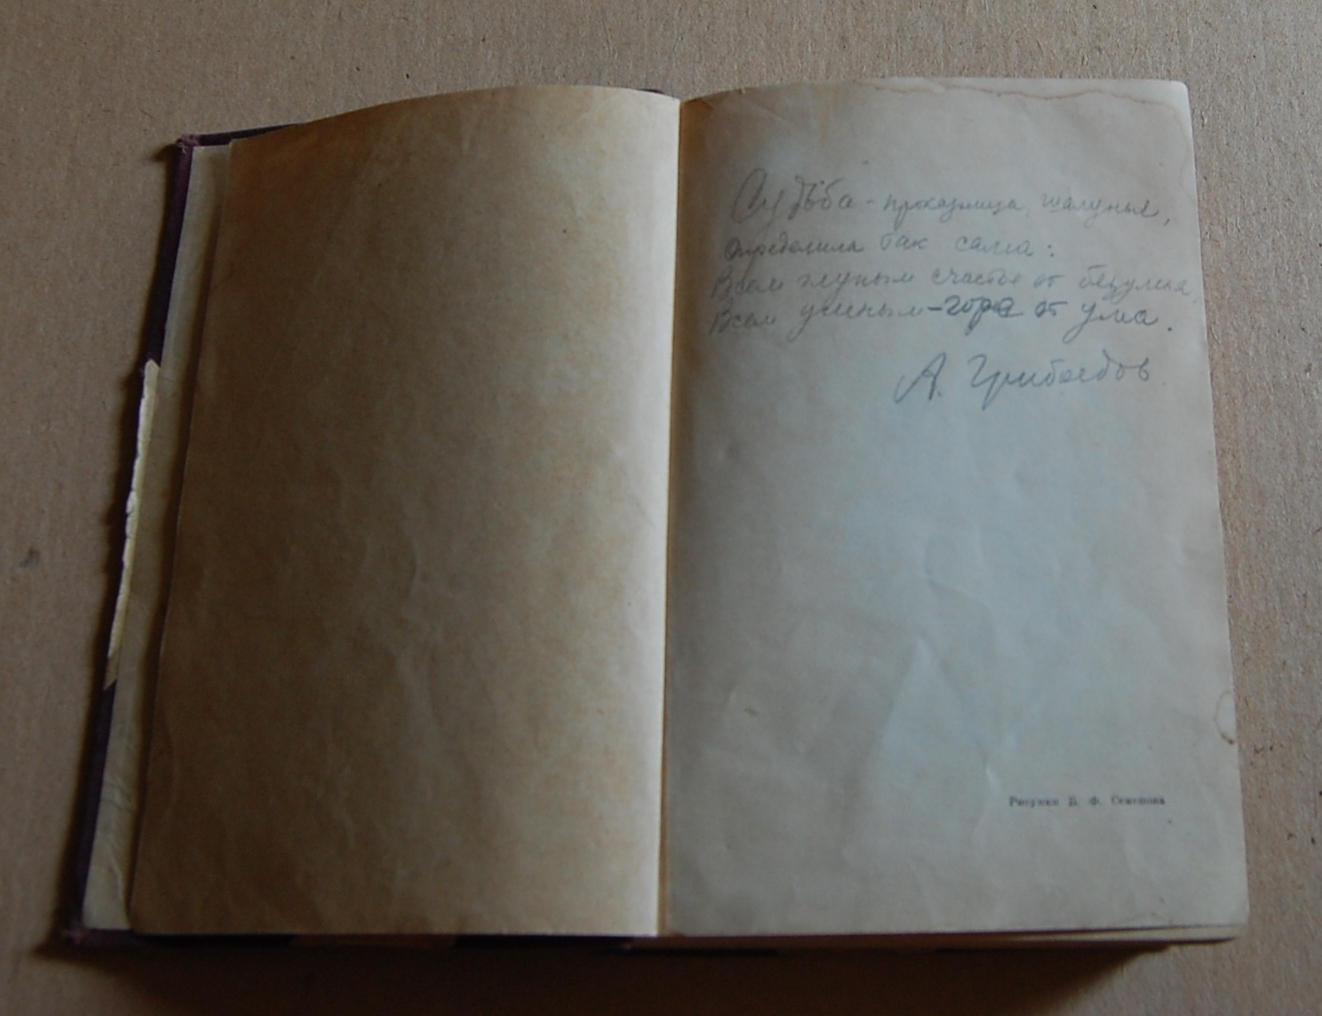 Судьба - проказница, шалунья,
Определила так сама:
Всем глупым счастье от безумия,
Всем умным - горе от ума.
А. Грибоедов
Рисунки В. Ф. Семенова